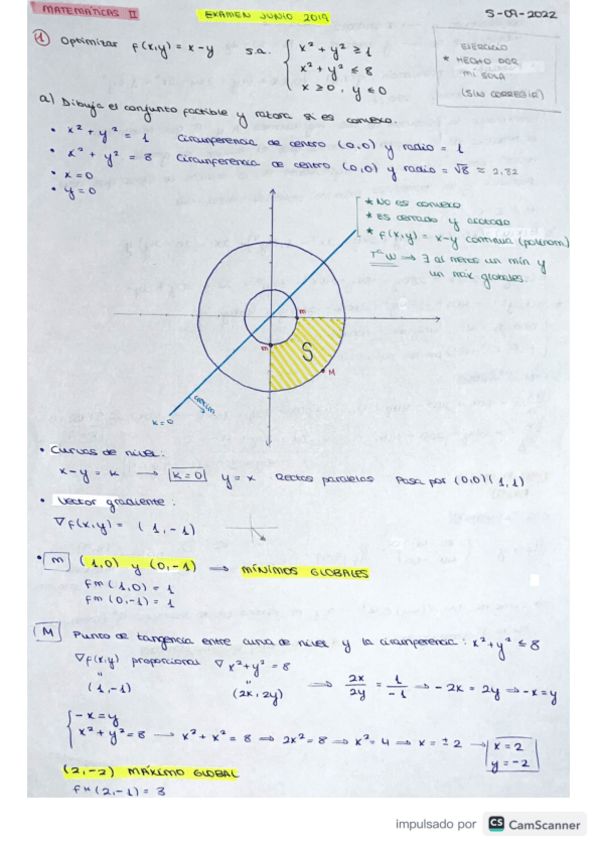 MATEMÁTICAS II
EXAMEN JUNIO 2019
5-09-2022
1 Optimizar f(x,y) = x-y s.a. { x² + y² ≥ 1
x² + y² ≤ 8
x ≥ 0, y ≤ 0
EJERCICIO
* HECHO POR
MI SOLA
(SIN CORREGIR)
a) Dibuja el conjunto factible y razona si es convexo.
• x² + y² = 1 Circunferencia de centro (0,0) y radio = 1
• x² + y² = 8 Circunferencia de centro (0,0) y radio = √8 ≈ 2,82
• x=0
• y=0
* No es convexo
* Es cerrado y acotado
* f(x,y) = x-y continua (polinom)
Tª W ⟹ ∃ al menos un mín y
un máx globales.
m
m
S
M
crecim
K=0
• Curvas de nivel:
x-y = K → K=0 y = x Rectas paralelas Pasa por (0,0)(1,1)
• Vector gradiente:
∇f(x,y) = (1,-1)
• m (1,0) y (0,-1) ⟹ MÍNIMOS GLOBALES
fm (1,0) = 1
fm (0,-1) = 1
M Punto de tangencia entre curva de nivel y la circunferencia: x²+y² ≤ 8
∇f(x,y) proporcional ∇ x²+y² = 8
" "
(1,-1) (2x,2y) ⟹ 2x/2y = 1/-1 → -2x = 2y → -x=y
{ -x=y
x²+y²=8 → x²+x² = 8 ⟹ 2x²=8 ⟹ x²=4 ⟹ x = ±2 → x=2
y=-2
(2,-2) MÁXIMO GLOBAL
fM (2,-1) = 3
impulsado por CS CamScanner